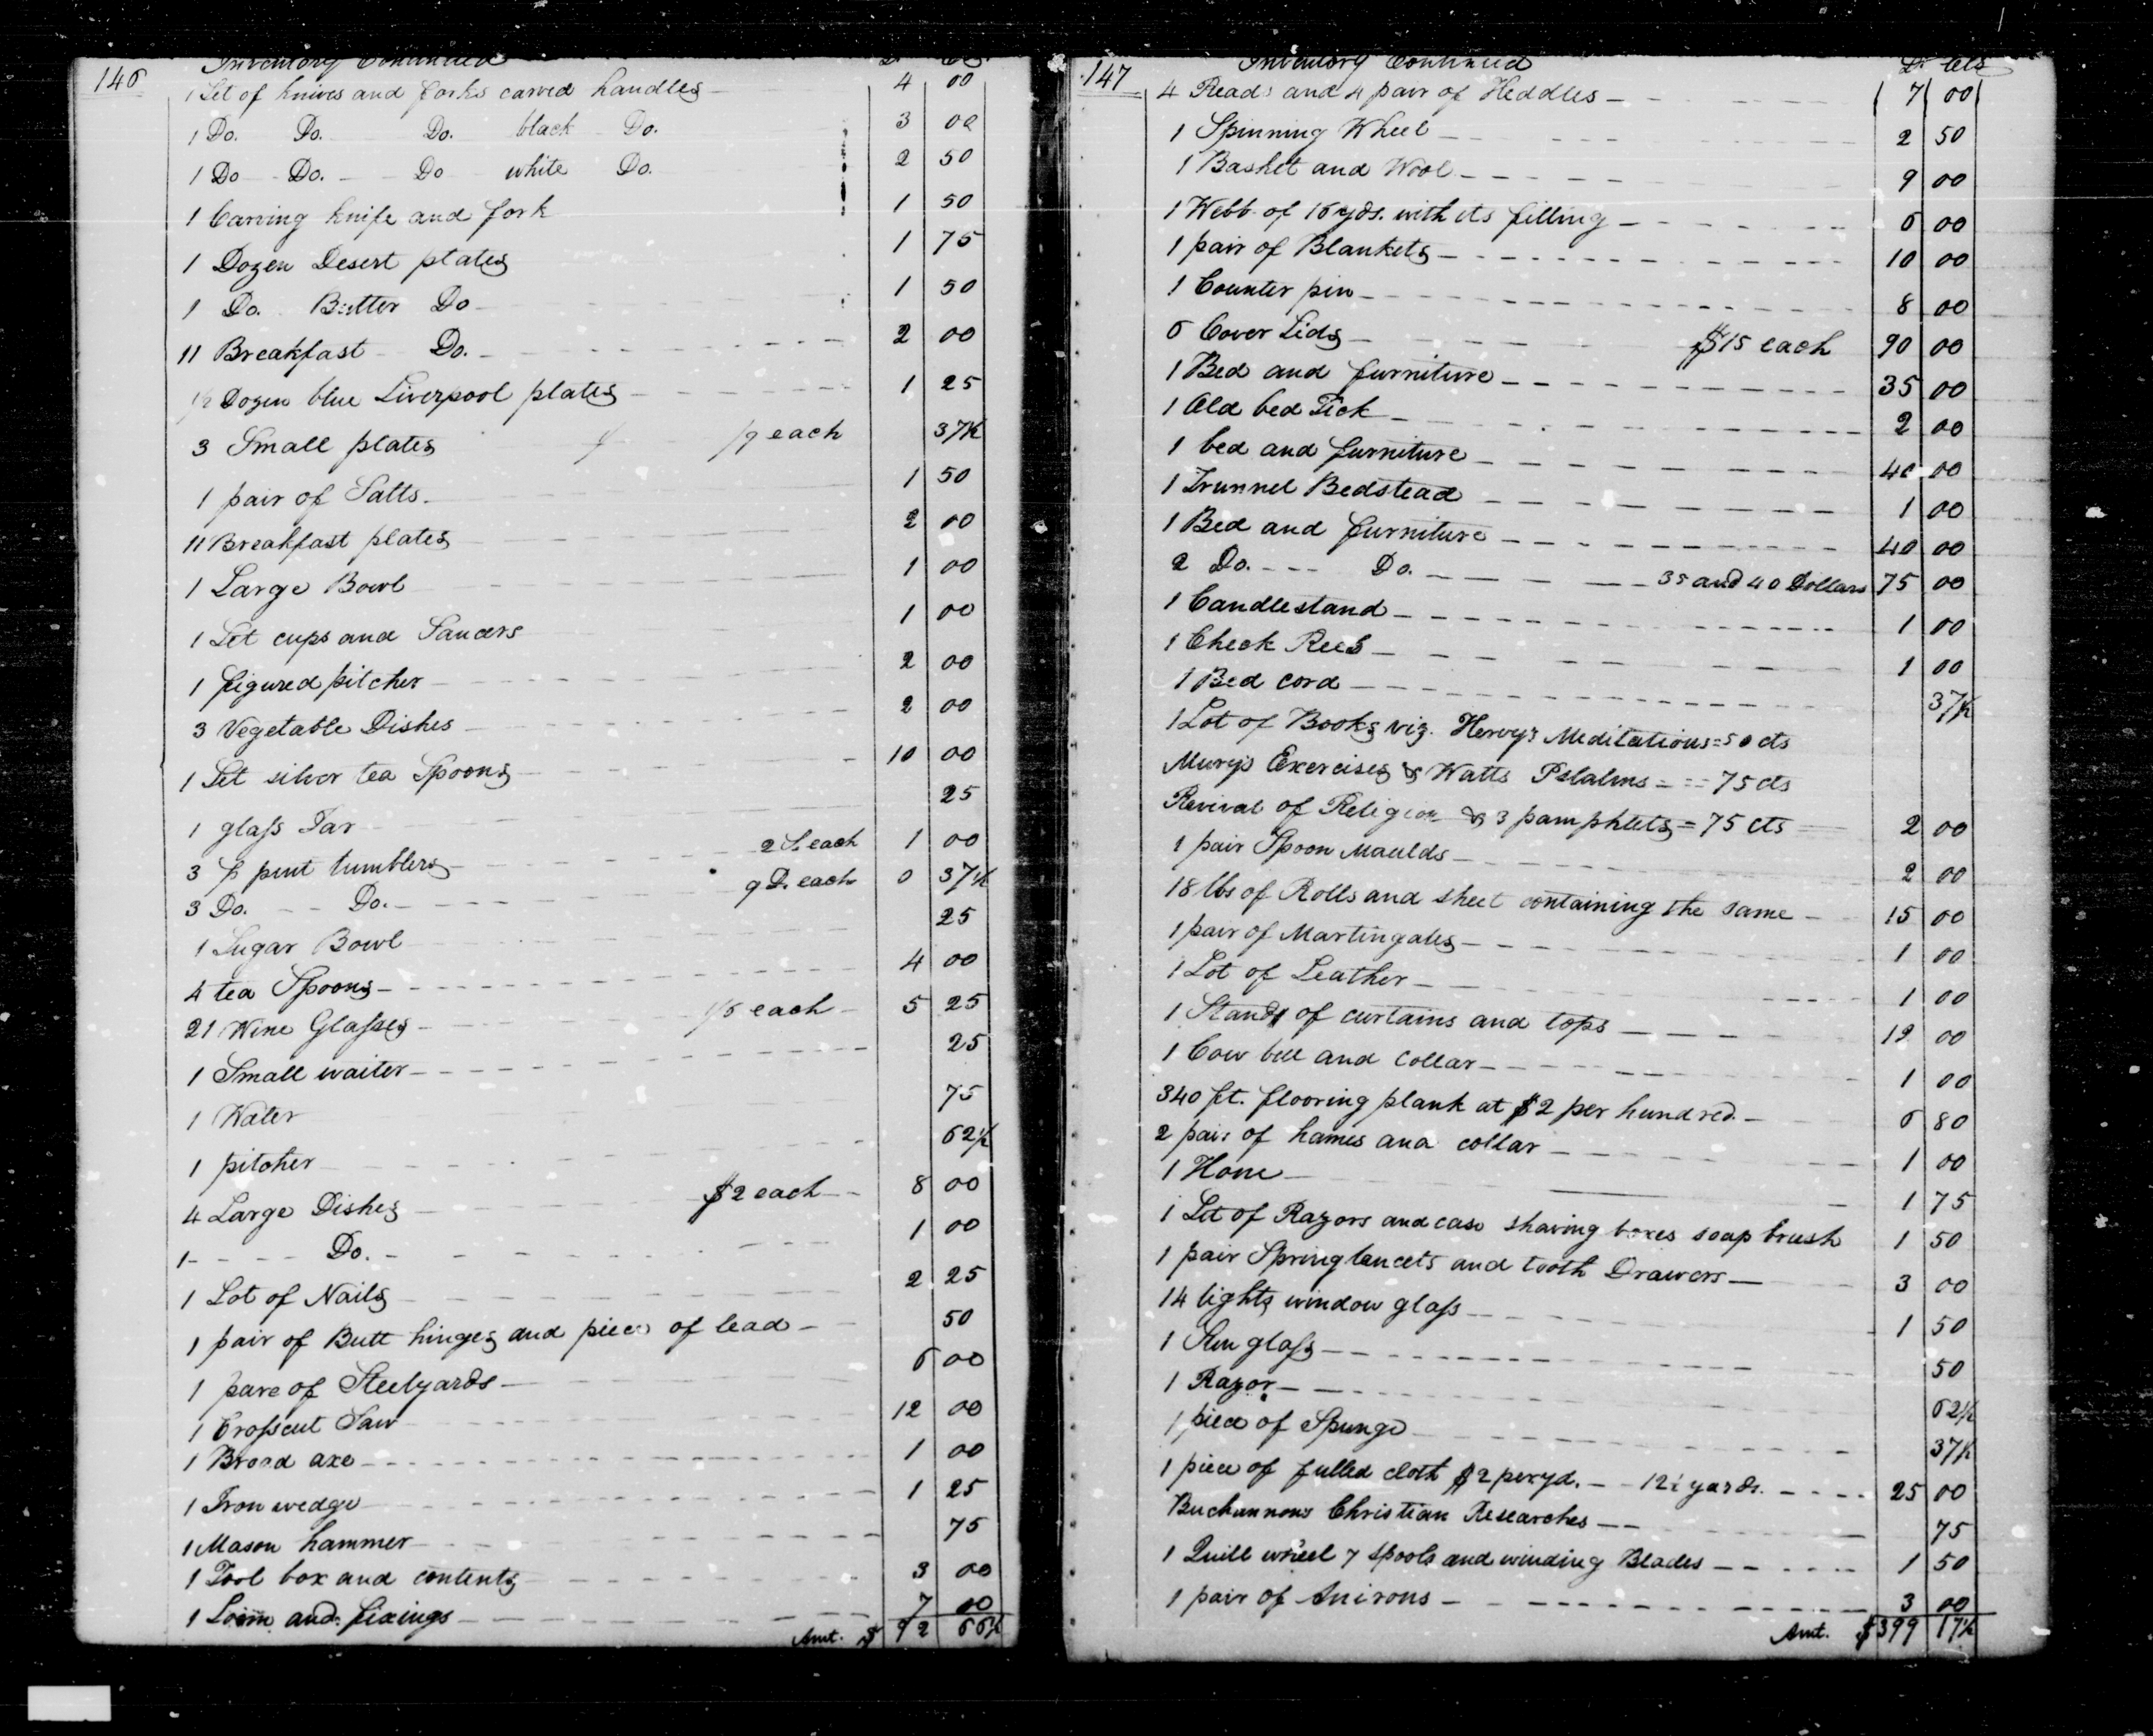 146 Inventory Continued D. Cts.
1 Set of knives and forks carved handles 4 00
1 Do. Do. Do. black Do. 3 00
1 Do Do. Do white Do. 2 50
1 Carving knife and fork 1 50
1 Dozen Desert plates 1 75
1 Do. Butter Do 1 50
11 Breakfast Do. 2 00
1/2 Dozen blue Liverpool plates 1 25
3 Small plates /9 each 37½
1 pair of Salts. 1 50
11 Breakfast plates 2 00
1 Large Bowl 1 00
1 Set cups and Saucers 1 00
1 figured pitcher 2 00
3 Vegetable Dishes 2 00
1 Set silver tea Spoons 10 00
1 glass Jar 25
3 ½ pint tumblers 2 S. each 1 00
3 Do. Do. 9 D. each 0 37½
1 Sugar Bowl 25
4 tea Spoons 4 00
21 Wine Glasses 1/6 each 5 25
1 Small waiter 25
1 Water 75
1 pitcher 62½
4 Large Dishes $2 each 8 00
1 Do. 1 00
1 Lot of Nails 2 25
1 pair of Butt hinges and piece of lead 50
1 pare of Steelyards 6 00
1 Crosscut Saw 12 00
1 Broad axe 1 00
1 Iron wedge 1 25
1 Mason hammer 75
1 Tool box and contents 3 00
1 Loom and fixings 7 00
Amt. $ 92 66½
147 Inventory Continued D. Cts
4 Reads and 4 pair of Heddles 7 00
1 Spinning Wheel 2 50
1 Basket and Wool 9 00
1 Webb of 16 yds. with its filling 6 00
1 pair of Blankets 10 00
1 Counter pin 8 00
6 Cover Lids $15 each 90 00
1 Bed and furniture 35 00
1 Old bed Tick 2 00
1 bed and furniture 40 00
1 Trunnel Bedstead 1 00
1 Bed and furniture 40 00
2 Do. Do. 35 and 40 Dollars 75 00
1 Candlestand 1 00
1 Check Reel 1 00
1 Bed cord 37½
1 Lot of Books viz. Hervy's Meditations = 50 cts
Mury's Exercises & Watts Pslalms = 75 cts
Revival of Religion & 3 pamphlets = 75 cts 2 00
1 pair Spoon Maulds 2 00
18 lbs of Rolls and sheet containing the same 15 00
1 pair of Martingales 1 00
1 Lot of Leather 1 00
1 Stands of curtains and tops 12 00
1 Cow bell and collar 1 00
340 ft. flooring plank at $2 per hundred. 6 80
2 pair of hames and collar 1 00
1 Hone 1 75
1 Set of Razors and case shaving boxes soap brush 1 50
1 pair Spring lancets and tooth Drawers 3 00
14 lights window glass 1 50
1 Sun glass 50
1 Razor 62½
1 piece of Spunge 37½
1 piece of fulled cloth $2 per yd. 12½ yards. 25 00
Buchannons Christian Researches 75
1 Quill wheel 7 spools and winding Blades 1 50
1 pair of Anirons 3 00
Amt. $399 17½